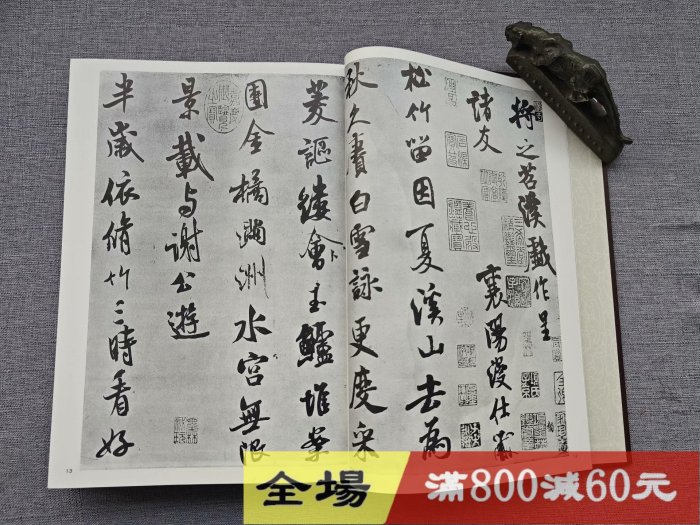 將之苕溪戲作呈
諸友
襄陽漫仕黻
松竹留因夏溪山去為
秋久賡白雪詠更度采
菱謳縷會玉鱸堆案
團金橘滿洲水宮無限
景載与謝公遊
半歲依脩竹三時看好
13
全場
滿800減60元